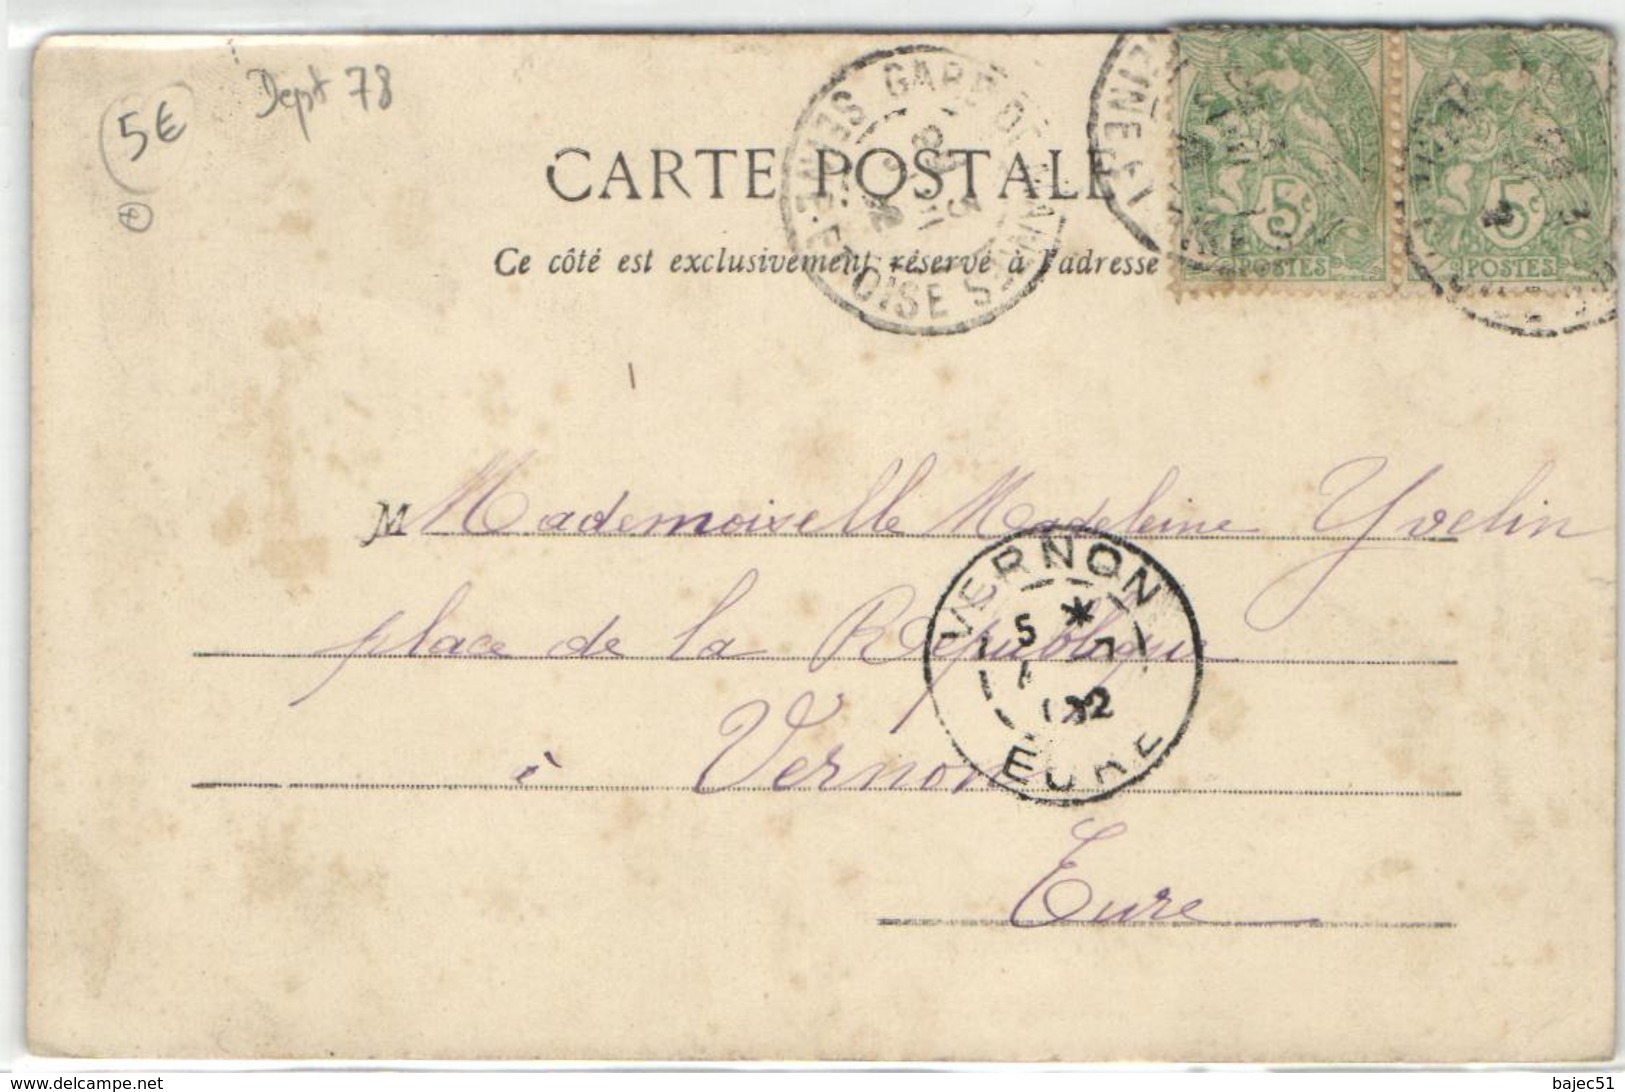 5€
Dept 78
CARTE POSTALE
Ce côté est exclusivement réservé à l'adresse
GARE DE MANTES
SEINE-ET-OISE
5c
POSTES
5c
POSTES
M Mademoiselle Madeleine Yvelin
place de la République
à Vernon
Eure
VERNON
5 * 7
02
EURE
www.delcampe.net
bajec51